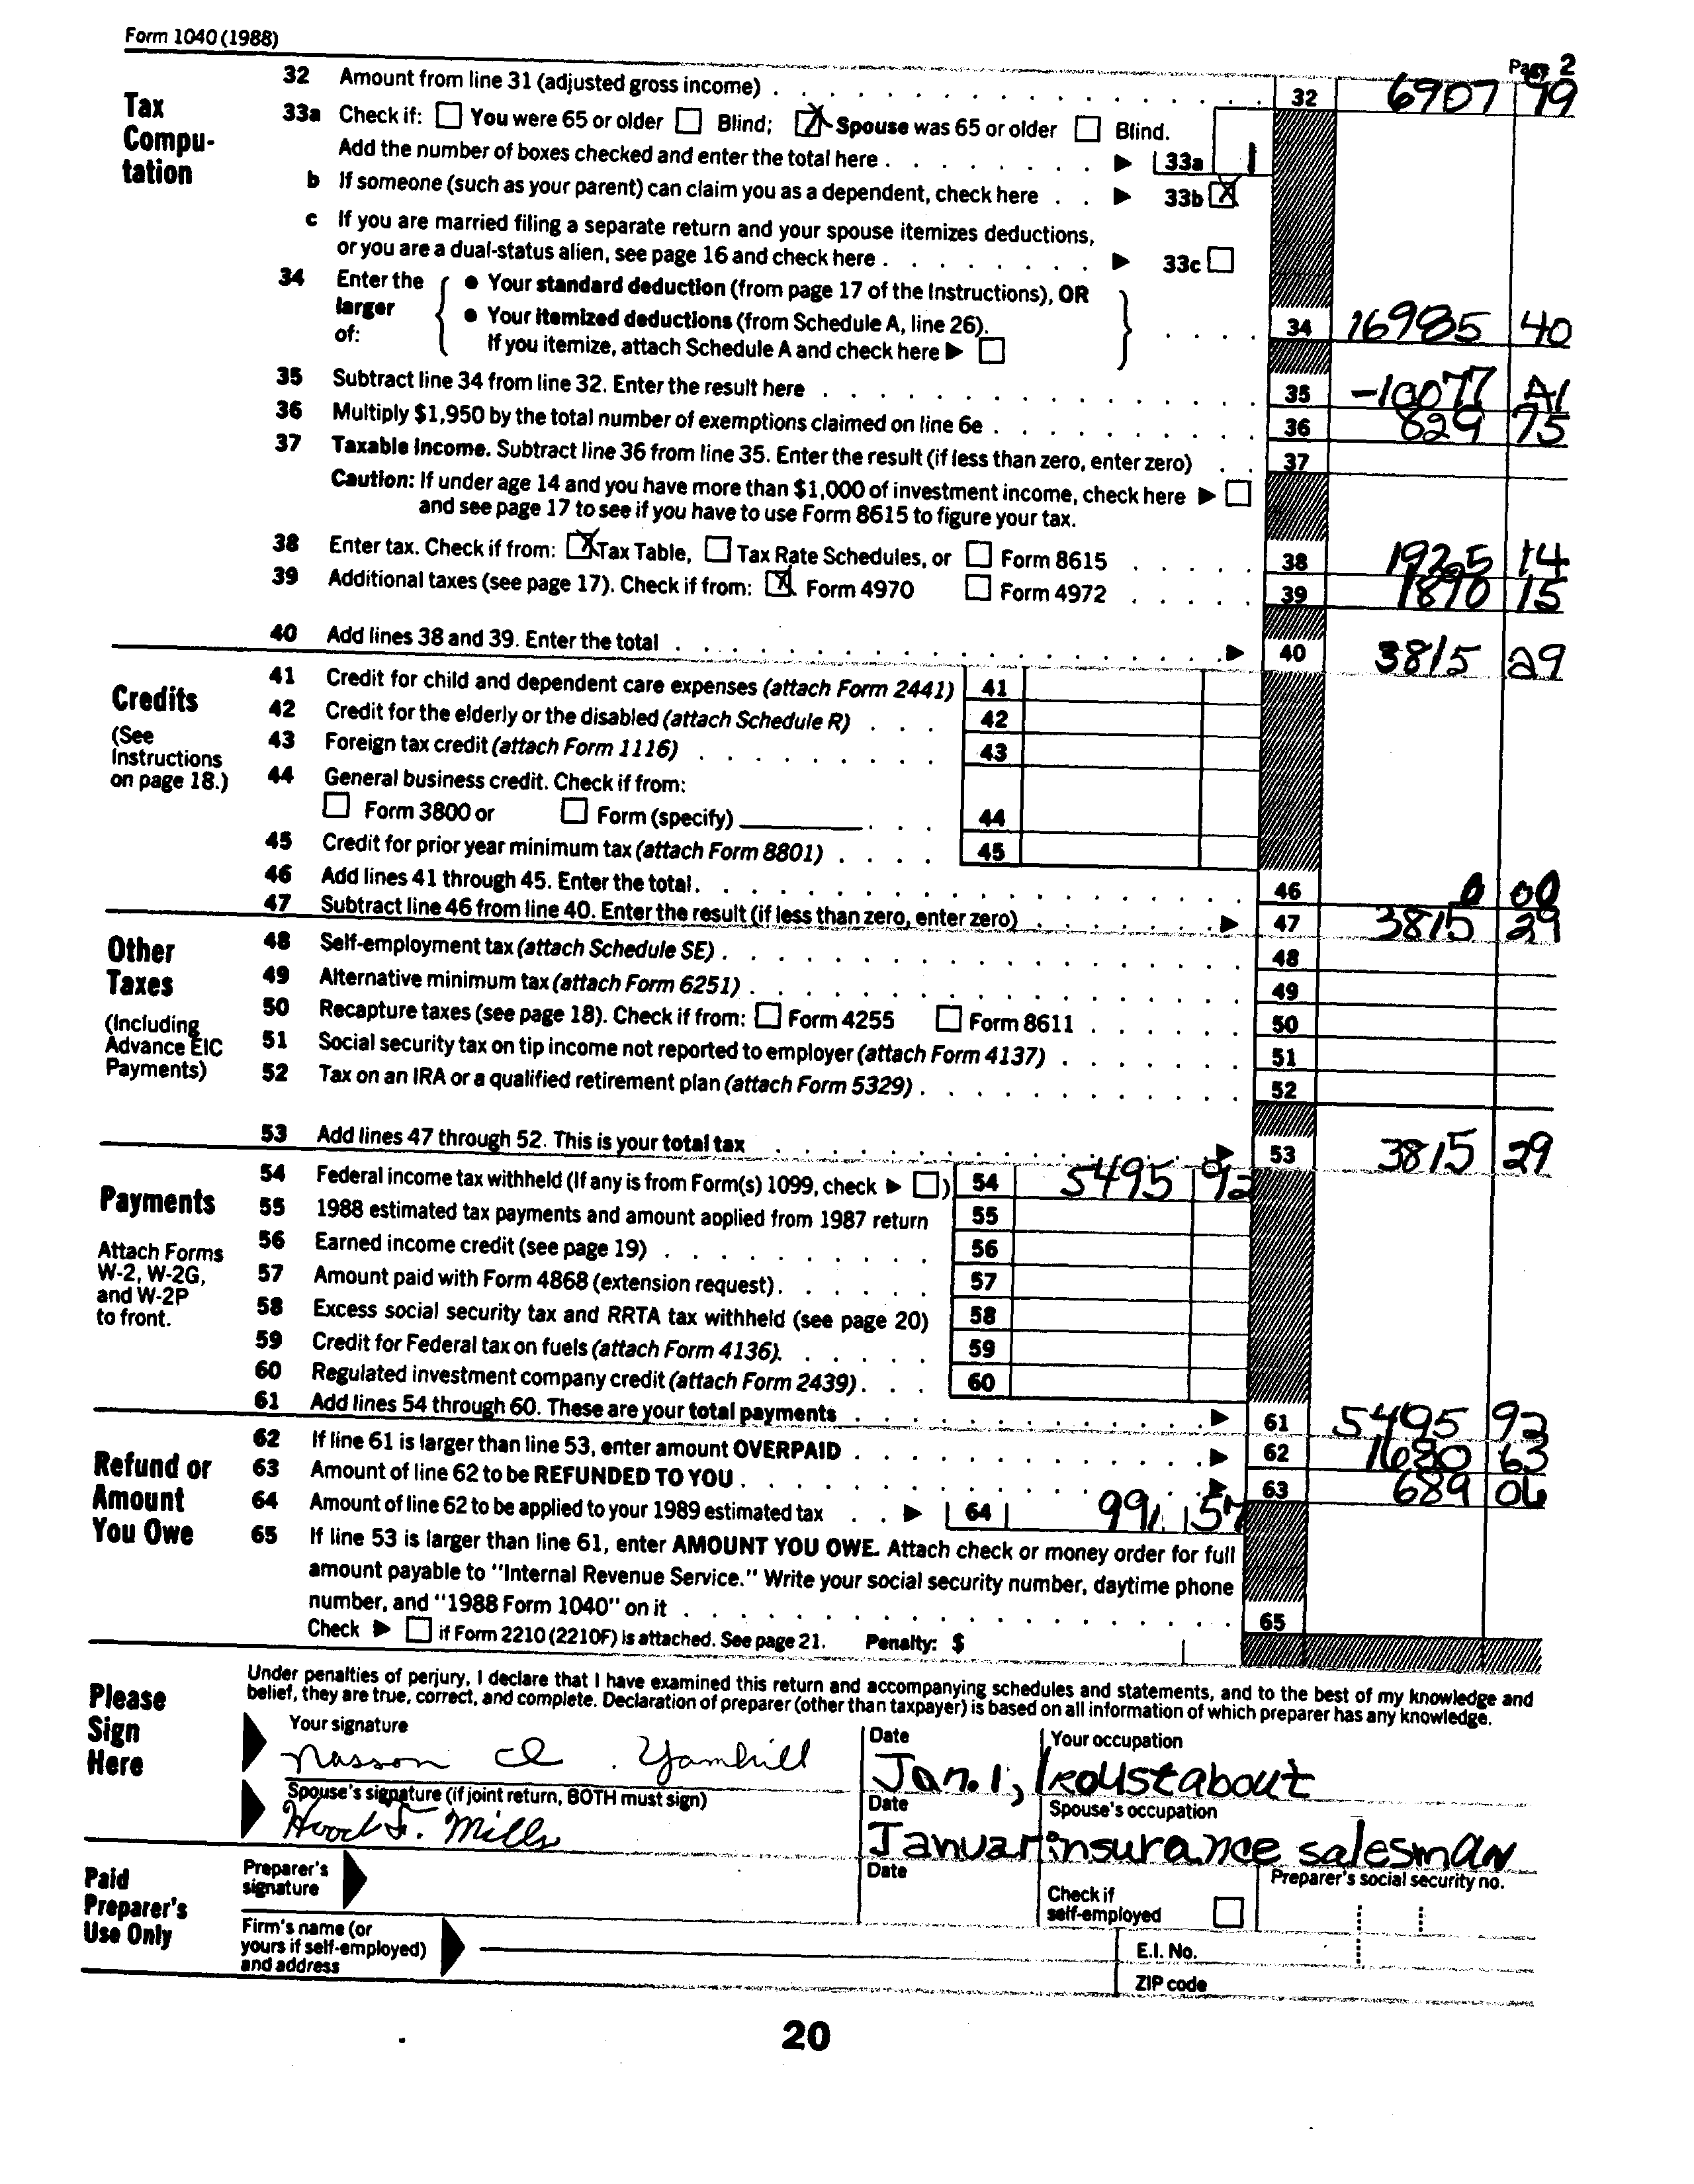 Form 1040 (1988)
Page 2
Tax Compu-tation
32 Amount from line 31 (adjusted gross income) 32 6907 19
33a Check if: You were 65 or older Blind; X Spouse was 65 or older Blind.
Add the number of boxes checked and enter the total here 33a 1
b If someone (such as your parent) can claim you as a dependent, check here 33b X
c If you are married filing a separate return and your spouse itemizes deductions,
or you are a dual-status alien, see page 16 and check here 33c
34 Enter the larger of:
• Your standard deduction (from page 17 of the Instructions), OR
• Your itemized deductions (from Schedule A, line 26).
If you itemize, attach Schedule A and check here
34 16985 40
35 Subtract line 34 from line 32. Enter the result here 35 -10077 A1
36 Multiply $1,950 by the total number of exemptions claimed on line 6e 36 829 75
37 Taxable income. Subtract line 36 from line 35. Enter the result (if less than zero, enter zero) 37
Caution: If under age 14 and you have more than $1,000 of investment income, check here
and see page 17 to see if you have to use Form 8615 to figure your tax.
38 Enter tax. Check if from: X Tax Table, Tax Rate Schedules, or Form 8615 38 1925 14
39 Additional taxes (see page 17). Check if from: X Form 4970 Form 4972 39 1890 15
40 Add lines 38 and 39. Enter the total 40 3815 29
Credits
(See Instructions on page 18.)
41 Credit for child and dependent care expenses (attach Form 2441) 41
42 Credit for the elderly or the disabled (attach Schedule R) 42
43 Foreign tax credit (attach Form 1116) 43
44 General business credit. Check if from:
Form 3800 or Form (specify) 44
45 Credit for prior year minimum tax (attach Form 8801) 45
46 Add lines 41 through 45. Enter the total. 46 0 00
47 Subtract line 46 from line 40. Enter the result (if less than zero, enter zero) 47 3815 29
Other Taxes
(Including Advance EIC Payments)
48 Self-employment tax (attach Schedule SE) 48
49 Alternative minimum tax (attach Form 6251) 49
50 Recapture taxes (see page 18). Check if from: Form 4255 Form 8611 50
51 Social security tax on tip income not reported to employer (attach Form 4137) 51
52 Tax on an IRA or a qualified retirement plan (attach Form 5329) 52
53 Add lines 47 through 52. This is your total tax 53 3815 29
Payments
Attach Forms W-2, W-2G, and W-2P to front.
54 Federal income tax withheld (If any is from Form(s) 1099, check ) 54 5495 92
55 1988 estimated tax payments and amount applied from 1987 return 55
56 Earned income credit (see page 19) 56
57 Amount paid with Form 4868 (extension request) 57
58 Excess social security tax and RRTA tax withheld (see page 20) 58
59 Credit for Federal tax on fuels (attach Form 4136). 59
60 Regulated investment company credit (attach Form 2439) 60
61 Add lines 54 through 60. These are your total payments 61 5495 92
Refund or Amount You Owe
62 If line 61 is larger than line 53, enter amount OVERPAID 62 1680 63
63 Amount of line 62 to be REFUNDED TO YOU 63 689 06
64 Amount of line 62 to be applied to your 1989 estimated tax 64 991 57
65 If line 53 is larger than line 61, enter AMOUNT YOU OWE. Attach check or money order for full
amount payable to "Internal Revenue Service." Write your social security number, daytime phone
number, and "1988 Form 1040" on it 65
Check if Form 2210 (2210F) is attached. See page 21. Penalty: $
Please Sign Here
Under penalties of perjury, I declare that I have examined this return and accompanying schedules and statements, and to the best of my knowledge and
belief, they are true, correct, and complete. Declaration of preparer (other than taxpayer) is based on all information of which preparer has any knowledge.
Your signature Date Your occupation
Nasson Cl . Yamhill Jan. 1, roustabout
Spouse's signature (if joint return, BOTH must sign) Date Spouse's occupation
Hood F. Mills Januar insurance salesman
Paid Preparer's Use Only
Preparer's signature Date Check if self-employed Preparer's social security no.
Firm's name (or yours if self-employed) and address E.I. No.
ZIP code
20